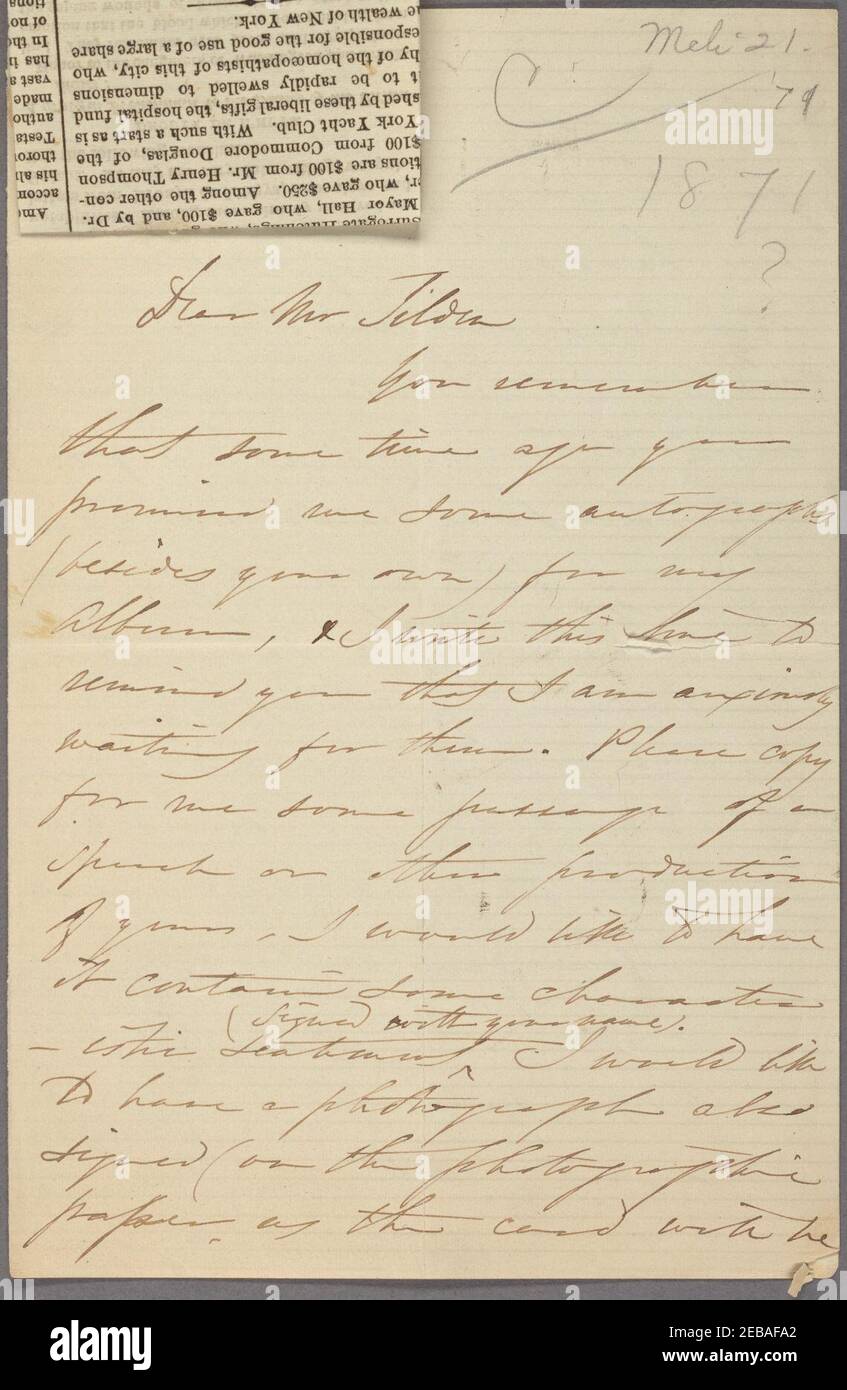 Mch 21.
'71
1871
?
Dear Mr Tilden
You remember
that some time ago you
promised me some autographs
(besides your own) for my
Album, & I write this line to
remind you that I am anxiously
waiting for them. Please copy
for me some passage of a
speech or other production
of yours, I would like to have
it contain some character
-istic sentiment (signed with your name). I would like
to have a photograph also
signed (on the photographic
paper, as the card will be
Surrogate Hutchings,
Mayor Hall, who gave $100, and by Dr.
er, who gave $250. Among the other con-
tions are $100 from Mr. Henry Thompson
$100 from Commodore Douglas, of the
York Yacht Club. With such a start as is
shed by these liberal gifts, the hospital fund
t to be rapidly swelled to dimensions
hy of the homœopathists of this city, who
responsible for the good use of a large share
he wealth of New York.
Ame
accom
his ab
thoro
Testa
autho
made
vast a
has
In the
of no
tions
alamy
a
Image ID: 2EBAFA2
www.alamy.com